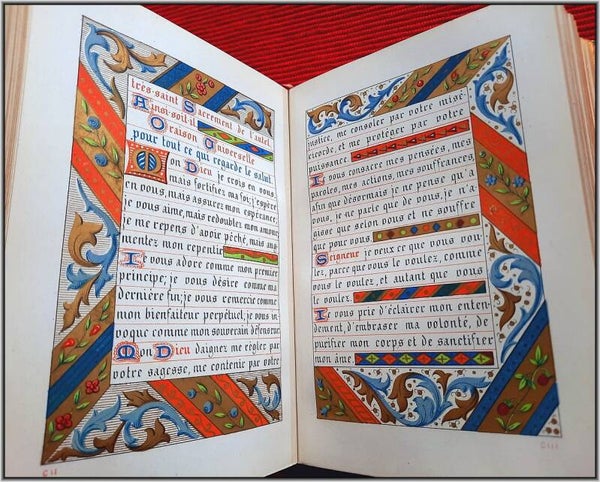 très-saint Sacrement de l'autel
Ainsi-soit-il.
Oraison Universelle
pour tout ce qui regarde le salut.
Mon Dieu je crois en vous,
mais fortifiez ma foi; j'espère
en vous, mais assurez mon espérance,
je vous aime, mais redoublez mon amour,
je me repens d'avoir péché, mais aug-
mentez mon repentir
Je vous adore comme mon premier
principe; je vous désire comme ma
dernière fin; je vous remercie comme
mon bienfaiteur perpétuel; je vous in-
voque comme mon souverain défenseur
Mon Dieu daignez me régler par
votre sagesse, me contenir par votre
justice, me consoler par votre misé-
ricorde, et me protéger par votre
puissance.
Je vous consacre mes pensées, mes
paroles, mes actions, mes souffrances,
afin que désormais je ne pense qu'à
vous, je ne parle que de vous, je n'a-
gisse que selon vous et ne souffre
que pour vous
Seigneur je veux ce que vous vou-
lez, parce que vous le voulez, comme
vous le voulez, et autant que vous
le voulez.
Je vous prie d'éclairer mon enten-
dement, d'embraser ma volonté, de
purifier mon corps et de sanctifier
mon âme.